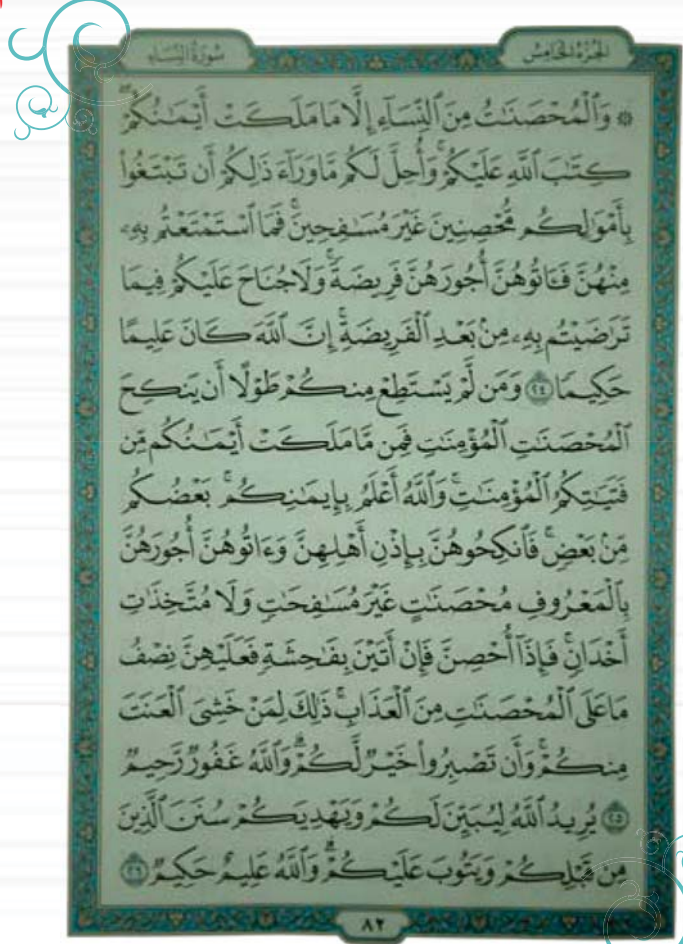 الجزء الخامس
سورة النساء
۞ وَٱلْمُحْصَنَٰتُ مِنَ ٱلنِّسَآءِ إِلَّا مَا مَلَكَتْ أَيْمَٰنُكُمْ ۖ
كِتَٰبَ ٱللَّهِ عَلَيْكُمْ ۚ وَأُحِلَّ لَكُم مَّا وَرَآءَ ذَٰلِكُمْ أَن تَبْتَغُوا۟
بِأَمْوَٰلِكُم مُّحْصِنِينَ غَيْرَ مُسَٰفِحِينَ ۚ فَمَا ٱسْتَمْتَعْتُم بِهِۦ
مِنْهُنَّ فَـَٔاتُوهُنَّ أُجُورَهُنَّ فَرِيضَةً ۚ وَلَا جُنَاحَ عَلَيْكُمْ فِيمَا
تَرَٰضَيْتُم بِهِۦ مِنۢ بَعْدِ ٱلْفَرِيضَةِ ۚ إِنَّ ٱللَّهَ كَانَ عَلِيمًا
حَكِيمًا ٢٤ وَمَن لَّمْ يَسْتَطِعْ مِنكُمْ طَوْلًا أَن يَنكِحَ
ٱلْمُحْصَنَٰتِ ٱلْمُؤْمِنَٰتِ فَمِن مَّا مَلَكَتْ أَيْمَٰنُكُم مِّن
فَتَيَٰتِكُمُ ٱلْمُؤْمِنَٰتِ ۚ وَٱللَّهُ أَعْلَمُ بِإِيمَٰنِكُم ۚ بَعْضُكُم
مِّنۢ بَعْضٍ ۚ فَٱنكِحُوهُنَّ بِإِذْنِ أَهْلِهِنَّ وَءَاتُوهُنَّ أُجُورَهُنَّ
بِٱلْمَعْرُوفِ مُحْصَنَٰتٍ غَيْرَ مُسَٰفِحَٰتٍ وَلَا مُتَّخِذَٰتِ
أَخْدَانٍ ۚ فَإِذَآ أُحْصِنَّ فَإِنْ أَتَيْنَ بِفَٰحِشَةٍ فَعَلَيْهِنَّ نِصْفُ
مَا عَلَى ٱلْمُحْصَنَٰتِ مِنَ ٱلْعَذَابِ ۚ ذَٰلِكَ لِمَنْ خَشِىَ ٱلْعَنَتَ
مِنكُمْ ۚ وَأَن تَصْبِرُوا۟ خَيْرٌ لَّكُمْ ۗ وَٱللَّهُ غَفُورٌ رَّحِيمٌ
٢٥ يُرِيدُ ٱللَّهُ لِيُبَيِّنَ لَكُمْ وَيَهْدِيَكُمْ سُنَنَ ٱلَّذِينَ
مِن قَبْلِكُمْ وَيَتُوبَ عَلَيْكُمْ ۗ وَٱللَّهُ عَلِيمٌ حَكِيمٌ ٢٦
٨٢